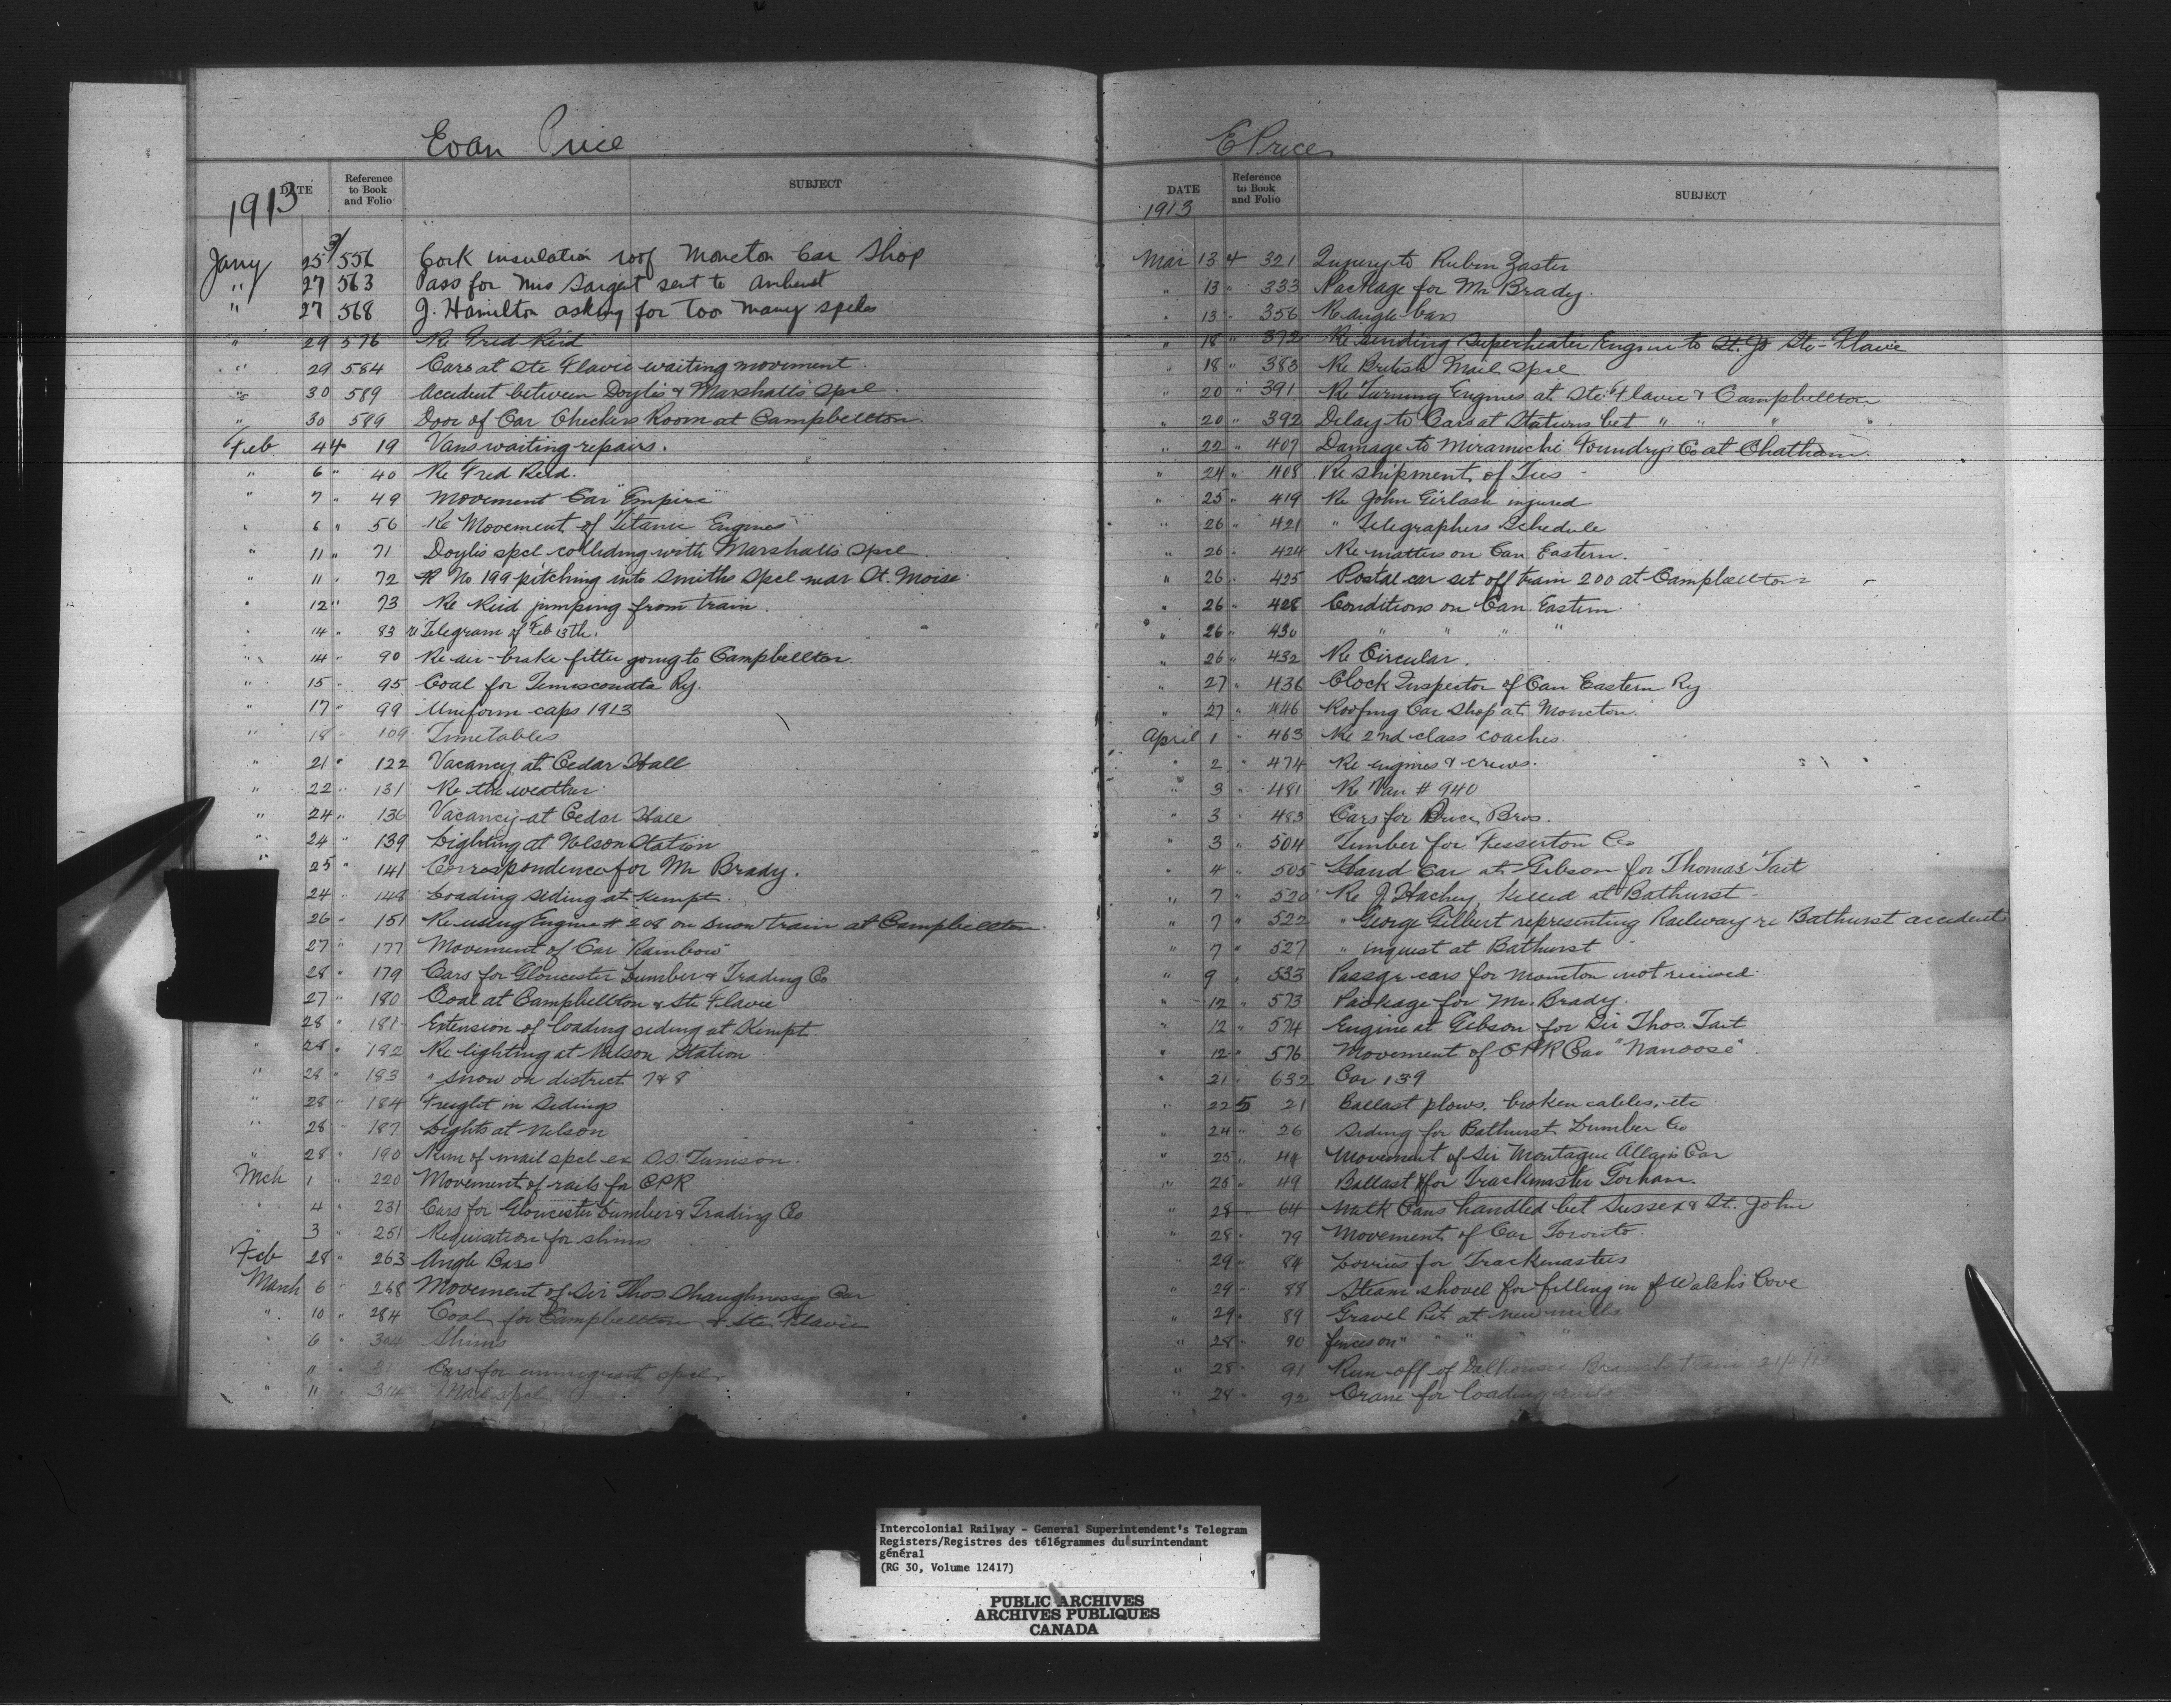 Evan Price
DATE Reference to Book and Folio SUBJECT
1913
Jany 25 3/ 556 Cork insulation roof Moncton Car Shop
" 27 563 Pass for Mrs Sargent sent to Amherst
" 27 568 J. Hamilton asking for too many spcls
" 29 576 Re Fred Reid
" 29 584 Cars at Ste Flavie waiting movement.
" 30 589 Accident between Doyles & Marshalls Spcl
" 30 589 Door of Car Checkers Room at Campbellton.
Feb 4 4 19 Vans waiting repairs.
" 6 " 40 Re Fred Reid.
" 7 " 49 Movement Car "Empire"
" 6 " 56 Re Movement of Titanic Engines
" 11 " 71 Doyles spcl colliding with Marshalls Spcl.
" 11 " 72 No 199 pitching into Smiths Spcl near St. Moise
" 12 " 73 Re Reid jumping from train.
" 14 " 83 Telegram of Feb 13th.
" 14 " 90 Re air-brake fitter going to Campbellton.
" 15 " 95 Coal for Temiscouata Ry.
" 17 " 99 Uniform caps 1913
" 18 " 109 Timetables
" 21 " 122 Vacancy at Cedar Hall
" 22 " 131 Re the weather
" 24 " 136 Vacancy at Cedar Hall
" 24 " 139 Lighting at Nelson Station
" 25 " 141 Correspondence for Mr Brady.
24 " 148 Loading siding at Kempt.
26 " 151 Re using Engine # 208 on snow train at Campbellton.
27 " 177 Movement of Car "Rainbow"
28 " 179 Cars for Gloucester Lumber & Trading Co
27 " 180 Coal at Campbellton & Ste Flavie
28 " 181 Extension of loading siding at Kempt
" 28 " 182 Re lighting at Nelson Station
" 28 " 183 " snow on district 7 & 8
" 28 " 184 Freight in Sidings
" 28 " 187 Lights at Nelson
" 28 " 190 Num of mail spcl ex S.S. Tunisian.
Mch 1 " 220 Movement of rails for CPR
" 4 " 231 Cars for Gloucester Lumber & Trading Co
" 3 " 251 Requisition for shims
Feb 28 " 263 Angle Bars
March 6 " 268 Movement of Sir Thos. Shaughnessys Car
" 10 " 284 Coal for Campbellton & Ste Flavie
" 6 " 304 Shims
" 11 " Cars for immigrant spcl.
" 11 " 314 Mail spcl.
E Price
DATE Reference to Book and Folio SUBJECT
1913
Mar 13 4 321 Injury to Rubin
" 13 " 333 Package for Mr Brady.
" 13 " 356 Re angle bars
" 18 " 372 Re sending Superheater Engine to St. Jo Ste-Flavie
" 18 " 383 Re British Mail Spcl
" 20 " 391 Re Turning Engines at Ste. Flavie & Campbellton
" 20 " 392 Delay to Cars at Stations bet " " " "
" 22 " 407 Damage to Miramichi Foundry's Co at Chatham.
" 24 " 408 Re shipment of Ties
" 25 " 419 Re John injured
" 26 " 421 " Telegraphers Schedule
" 26 " 424 Re matters on Can Eastern.
" 26 " 425 Postal car set off train 200 at Campbellton
" 26 " 428 Conditions on Can Eastern.
" 26 " 430 " " " "
" 26 " 432 Re Circular.
" 27 " 436 Clock Inspector of Can Eastern Ry
" 27 " 446 Roofing Car Shop at Moncton.
April 1 " 463 Re 2nd class coaches.
" 2 " 474 Re engines & crews.
" 3 " 481 Re Van # 940
" 3 " 483 Cars for Price Bros.
" 3 " 504 Timber for Fesserton Co
" 4 " 505 Hand Car at Gibson for Thomas Tait
" 7 " 520 Re J. Hachey, killed at Bathurst
" 7 " 522 " George Gilbert representing Railway re Bathurst accident
" 7 " 527 " inquest at Bathurst
" 9 " 533 Passgr cars for Moncton not received.
" 12 " 573 Package for Mr. Brady.
" 12 " 574 Engine at Gibson for Sir Thos. Tait
" 12 " 576 Movement of CPR Car "Nanoose"
" 21 " 632 Car 139
" 22 5 21 Ballast plows, broken cables, etc
" 24 " 26 Siding for Bathurst Lumber Co
" 25 " 44 Movement of Sir Montague Allan's Car
" 25 " 49 Ballast for Trackmaster Gorham.
" 28 " 64 Milk Cans handled bet Sussex & St. John
" 28 " 79 Movement of Car Toronto.
" 29 " 84 Lorries for Trackmasters
" 29 " 88 Steam shovel for filling in of Walsh's Cove
" 29 " 89 Gravel Pit at New Mills
" 28 " 90 fences on " " " "
" 28 " 91 Run-off of Dalhousie Branch train
" 28 " 92 Crane for loading rails
Intercolonial Railway - General Superintendent's Telegram
Registers/Registres des télégrammes du surintendant
général
(RG 30, Volume 12417)
PUBLIC ARCHIVES
ARCHIVES PUBLIQUES
CANADA